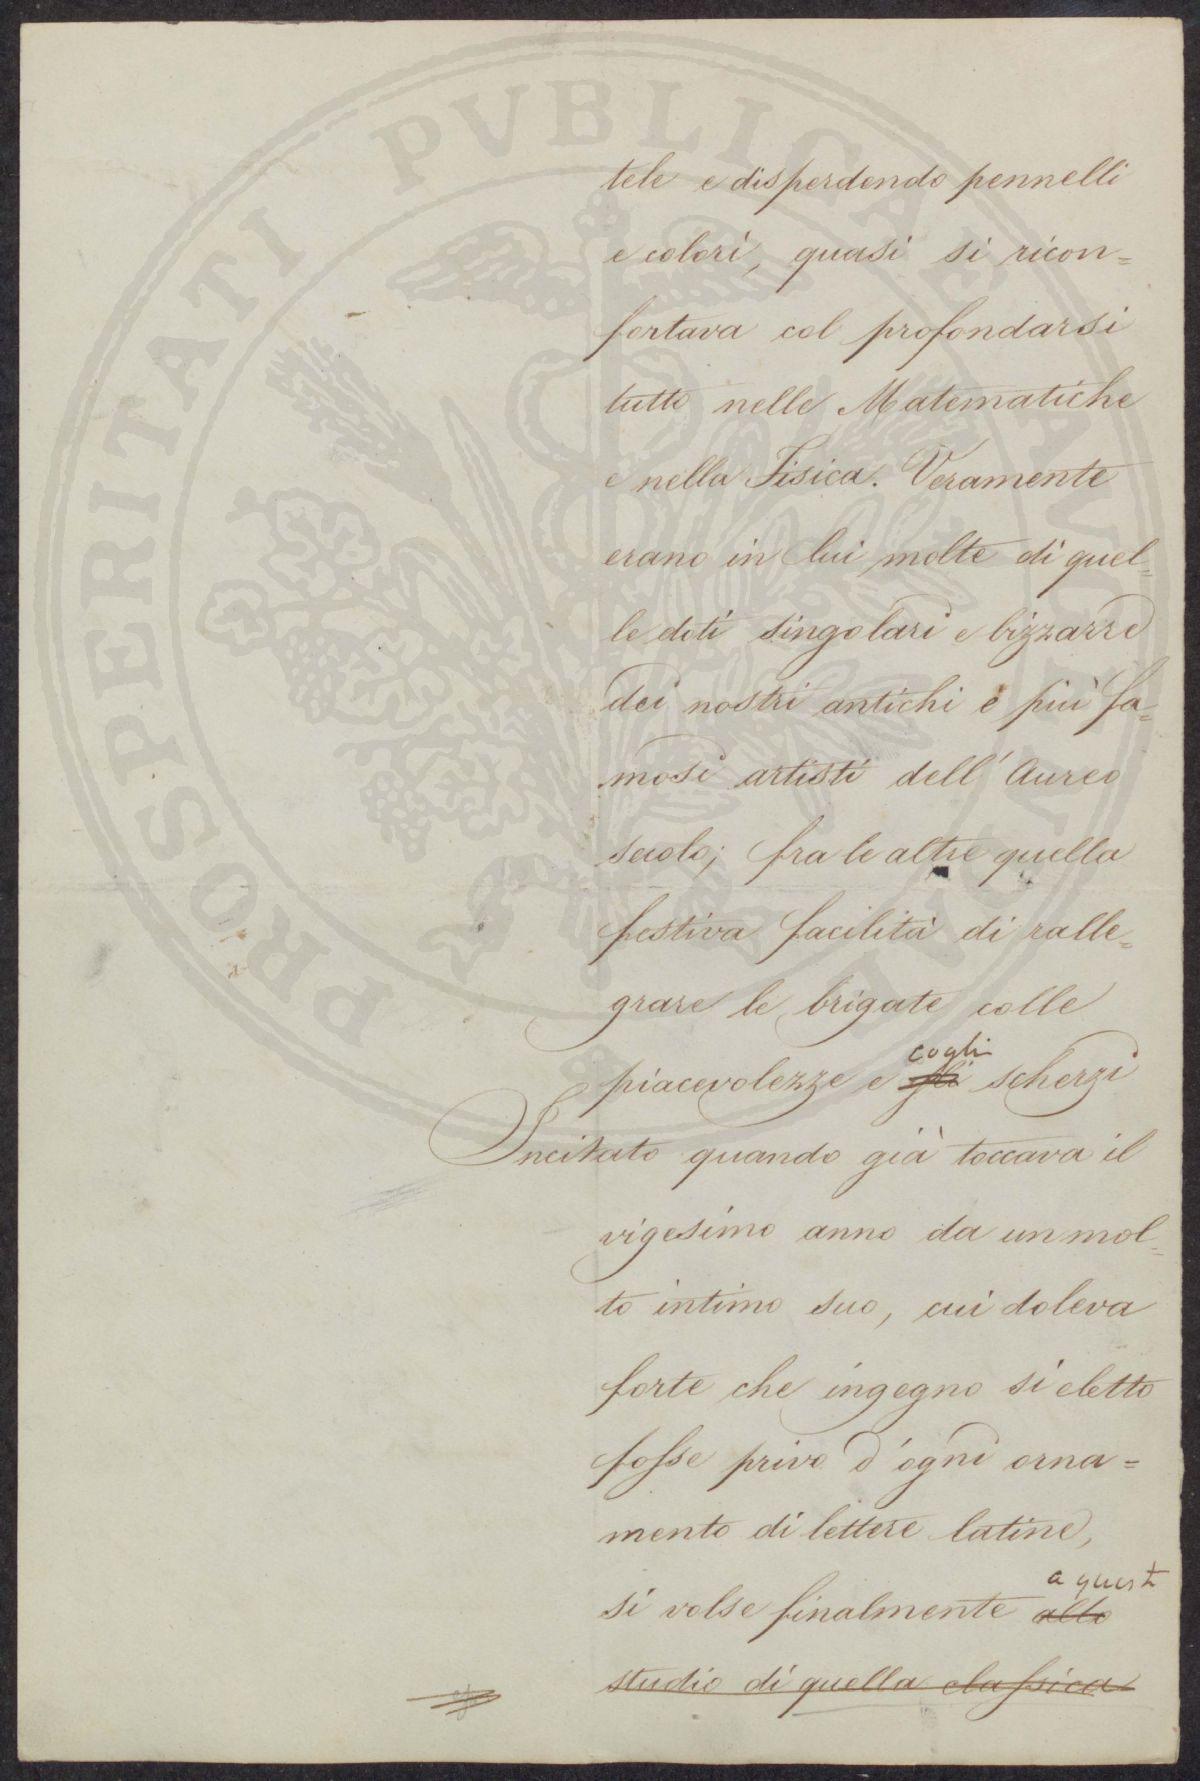 tele e disperdendo pennelli
e colori, quasi si ricon=
fortava col profondarsi
tutto nelle Matematiche
e nella Fisica. Veramente
erano in lui molte di quel=
le doti singolari e bizzarre
dei nostri antichi e più fa=
mosi artisti dell'Aureo
secolo; fra le altre quella
festiva facilità di ralle=
grare le brigate colle
cogli
piacevolezze e gli scherzi
Incitato quando già toccava il
vigesimo anno da un mol=
to intimo suo, cui doleva
forte che ingegno sì eletto
fosse privo d'ogni orna=
mento di lettere latine,
a questi
si volse finalmente allo
studio di quella classica
PROSPERITATI PVBLICAE